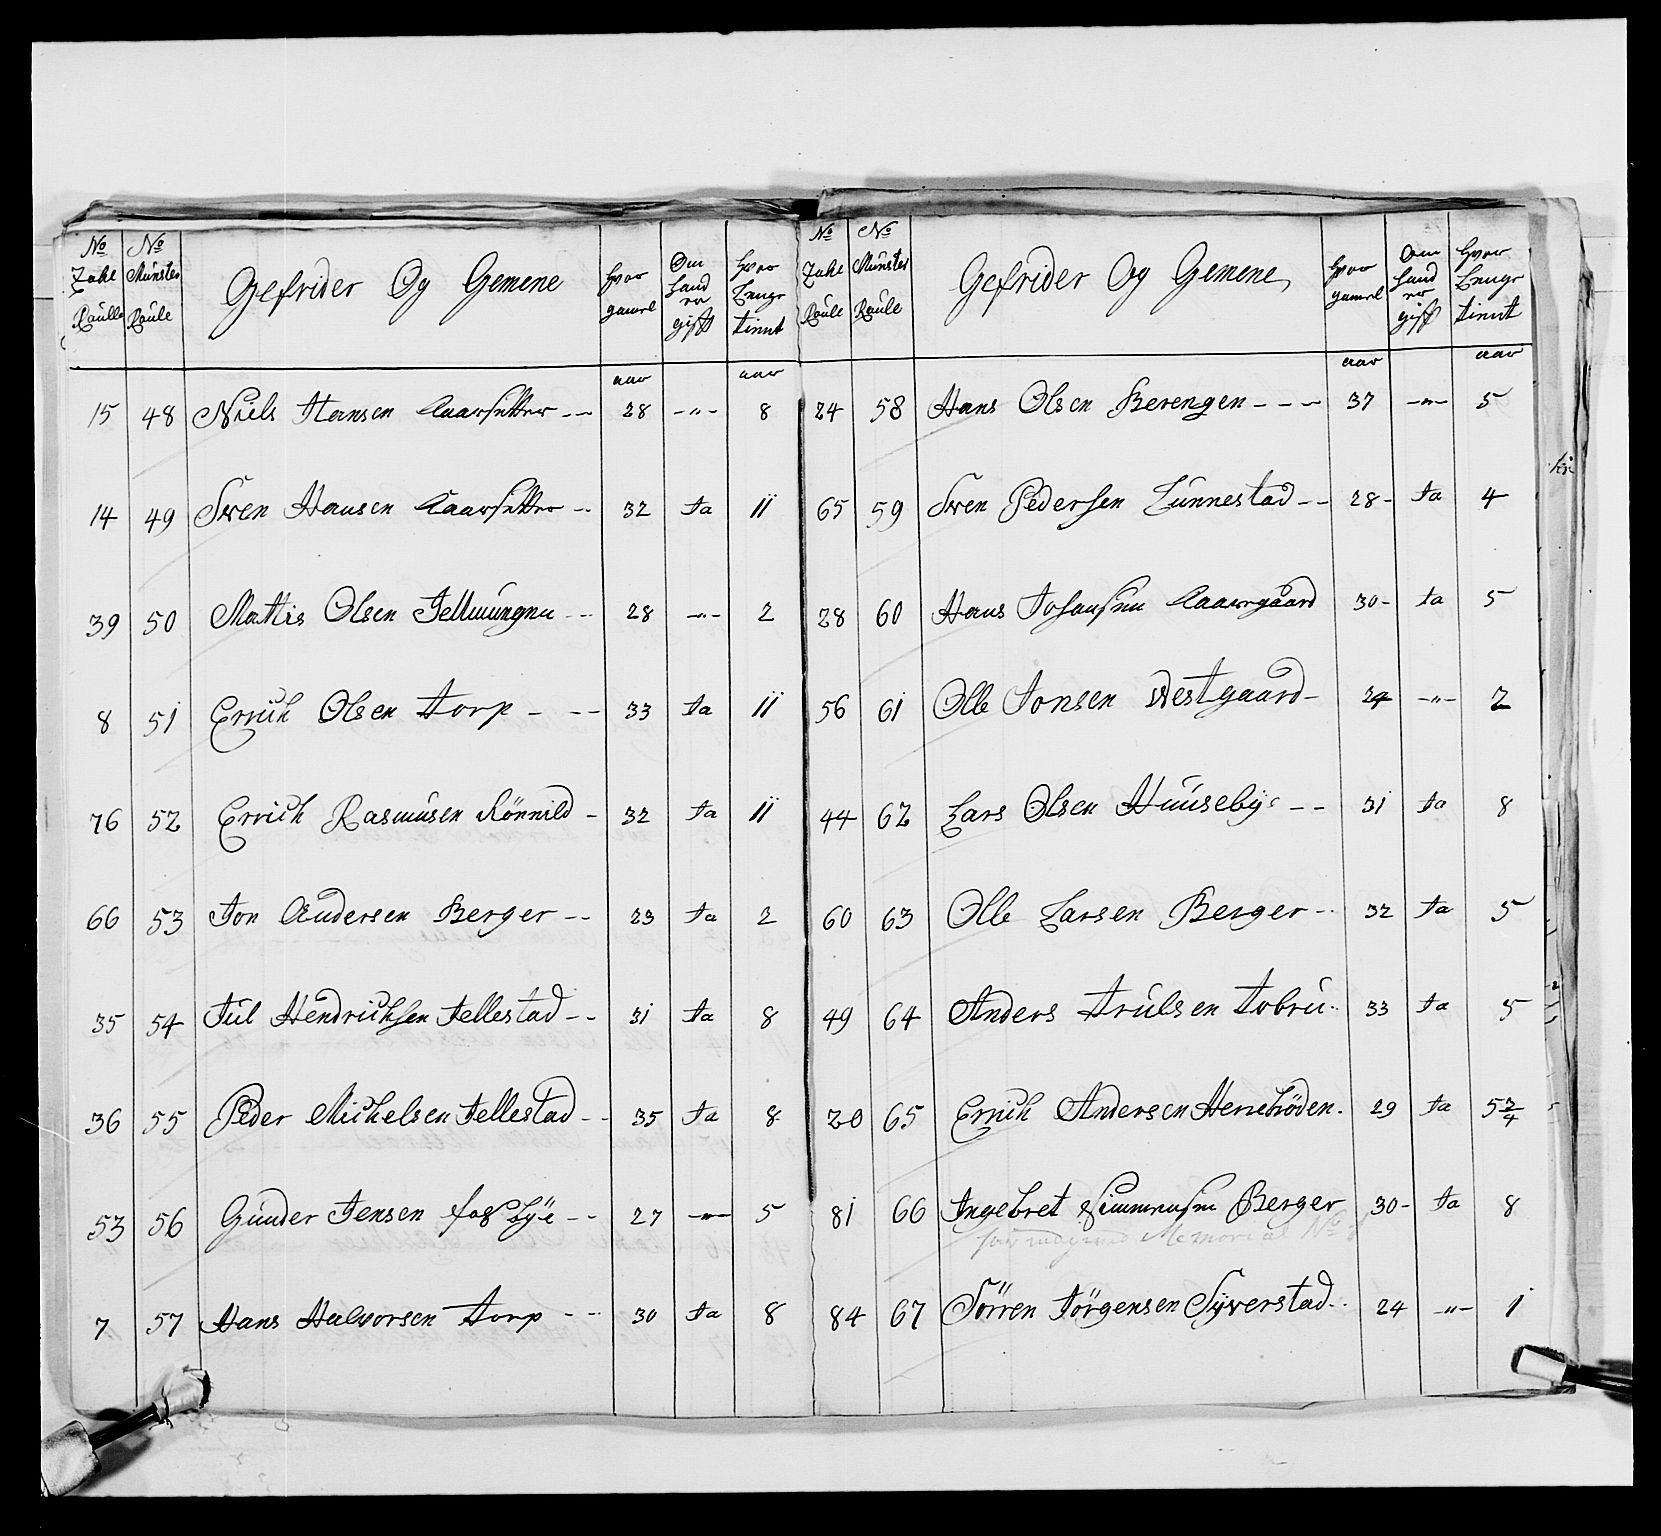 No Zahl Raulle | No Munster Raule | Gefrider Og Gemene | hvor gamel | Om hand er gift | hvor Lenge tient
aar | aar
15 48 Niels Hansen Aaarsetter -- 28 -"- 8
14 49 Sven Hansen Aaarsetter -- 32 Ja 11
39 50 Mattis Olsen -- 28 -"- 2
8 51 Errich Olsen Torp - -- 33 Ja 11
76 52 Errich Rasmusen Rönnild - 32 Ja 11
66 53 Jon Andersen Berger -- 23 Ja 2
35 54 Jul Hendrichsen Jellestad -- 31 Ja 8
36 55 Peder Michelsen Jellestad -- 35 Ja 8
53 56 Gunder Jensen fosbÿe -- 27 -"- 5
7 57 Hans Halvorsen Torp -- 30 Ja 8
No Zahl Raule | No Munster Raule | Gefrider Og Gemene, | hvor gamel | Om hand er gift | hvor Lenge tient
aar | aar
24 58 Hans Olsen Berengen --- 37 -"- 5
65 59 Sven Pedersen Lunnestad -- 28- Ja 4
28 60 Hans Johansen Aaasrgaard 30- Ja 5
56 61 Olle Jonsen Westgaard - 24 -"- 2
44 62 Lars Olsen Huusebÿe -- 31 Ja 8
60 63 Olle Larsen Berger -- 32 Ja 5
49 64 Anders Trulsen Tobru - 33 Ja 5
20 65 Errich Andersen Herrebröden. 29 Ja 5 3/4
81 66 Ingebret Simmensen Berger 30- Ja 8
Memorial No
84 67 Sörren Jörgensen Syverstad -- 24 -"- 1